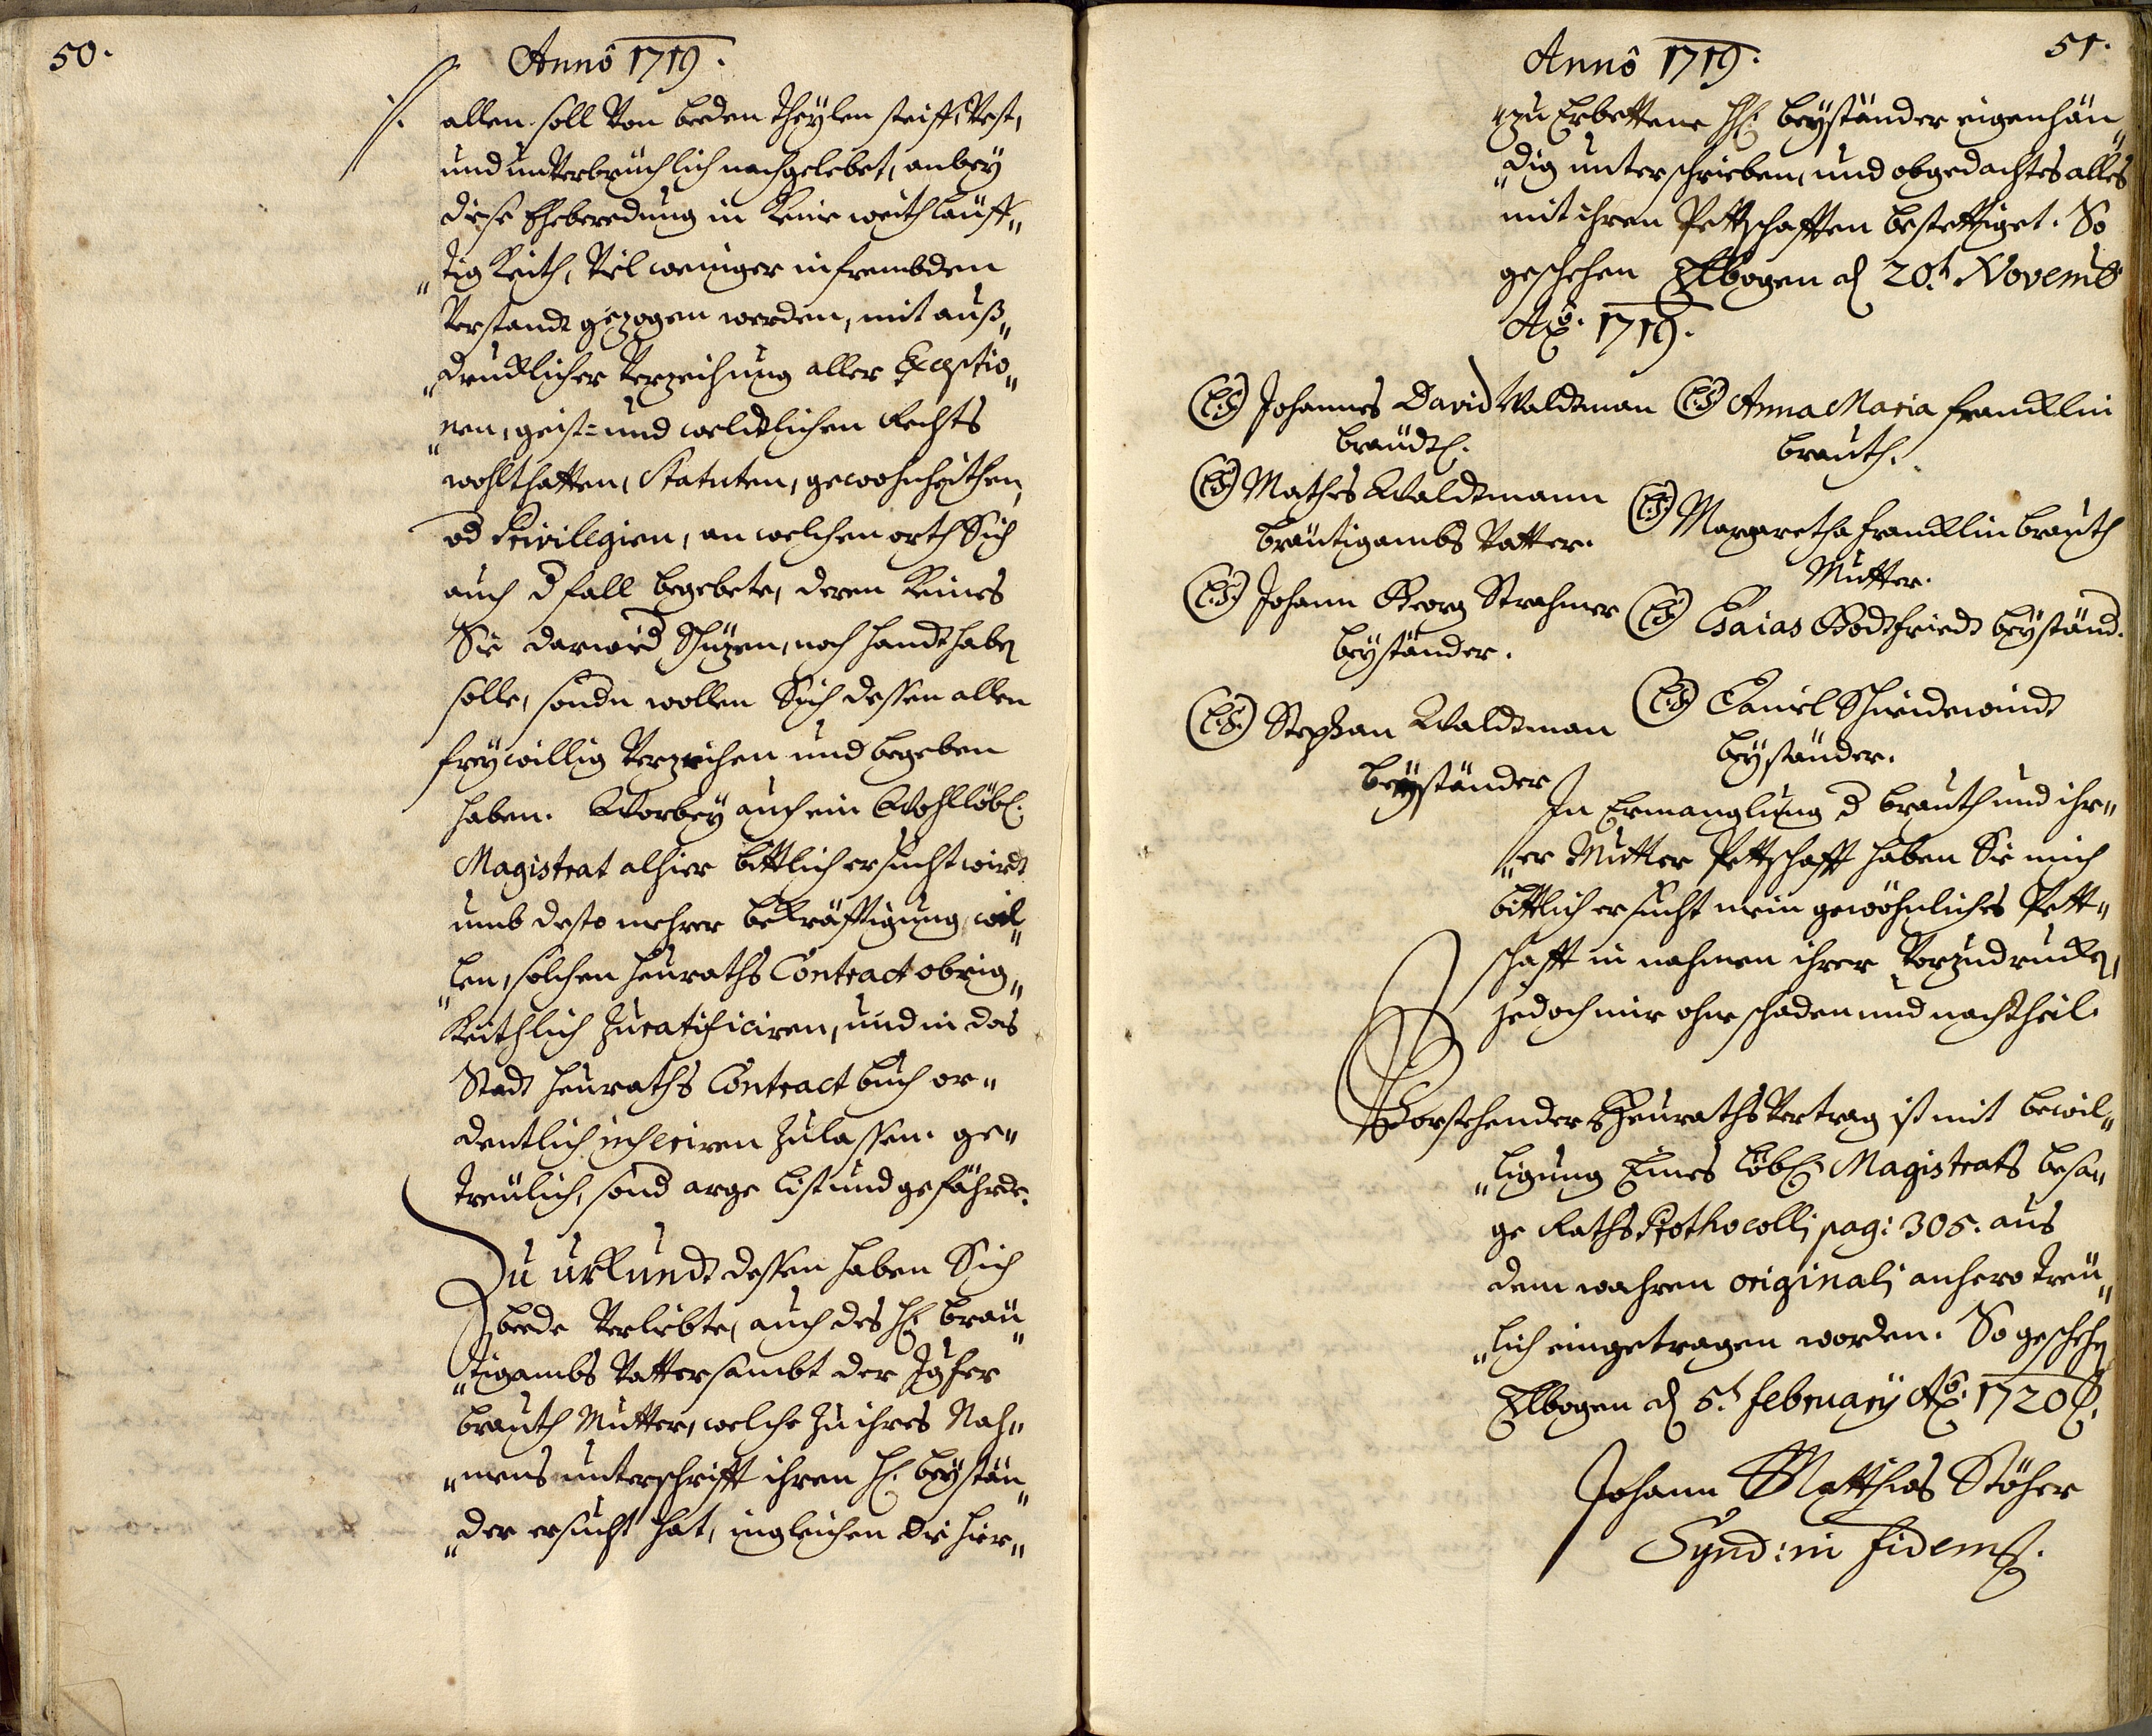 50.
Annô 1719.
allen soll Von beeden Theylen steiff, Vest,
und unVerbrüchlich nachgelebet, anbey
diese Eheberedung in Keine weithläuff„
„tigKeith, Viel weniger in frembden
Verstandt gezogen werden, mit auß„
„drucklicher Verzeihung aller Exceptio„
„nen, geist= und weldtlichen Rechts
wohlthatten, Statuten, gewohnheithen,
od Privilegien, an welchen orth Sich
auch d fall begebete, deren Keines
Sie darwid Schüzen, noch handthaben
solle, sondn wollen Sich dessen allen
freywillig Verzeihen und begeben
haben. Worbey auch ein Wohllöbl:
Magistrat alhier bittlich ersucht wirdt
umb desto mehrer bekräfftigung wil„
„len, solchen heuraths Contract obrig„
Keithlich zu ratificiren, und in das
Stadt heuraths Contract buch or„
dentlich inseriren zulassen. ge„
treülich, sond arge list und gefährde.
Zu uhrkundt dessen haben Sich
beede Verliebte, auch des H: bräu„
„tigambs Vatter sambt der Jgfer
brauth Mutter, welche zu ihres Nah„
„mens unterschrifft ihren H: beystän„
„der ersucht hat, ingleichen die hier„
51.
Annô 1719.
„zu Erbettene HH: beyständer eigenhän„
„dig unterschrieben, und obgedachtes alles
mit ihren Pettschafften bestettiget. So
geschehen Elbogen d 20t Novemb
Aõ. 1719.
(L.S.) Johannes David Waldtman
bräudt.
(L.S.) Anna Maria francklin
brauth.
(L.S.) Mathes Waldtmann
bräutigambs Vatter.
(L.S.) Margaretha francklin brauth
Mutter.
(L.S.) Johann Georg Strahmer
beyständer.
(L.S.) Esaias Godtfriedt beyständ.
(L.S.) Stephan Waldtman
beyständer
(L.S.) Daniel Schneidewindt
beyständer.
In Ermanglung d brauth und ihr„
„er Mutter Pettschafft haben Sie mich
bittlich ersucht mein gewöhnliches Pett„
schafft in nahmen ihrer Vorzudrucken,
jedoch mir ohne schaden und nachtheil.
Vorstehender Heuraths Vertrag ist mit bewil„
„ligung Eines Löbl: Magistrats besa„
ge Raths Prothocolli pag: 305. aus
dem wahren originali anhero treü„
„lich eingetragen worden. So geschehen
Elbogen d 5t february Aõ. 1720.
Johann Matthias Stöhr
Synd: in fidem